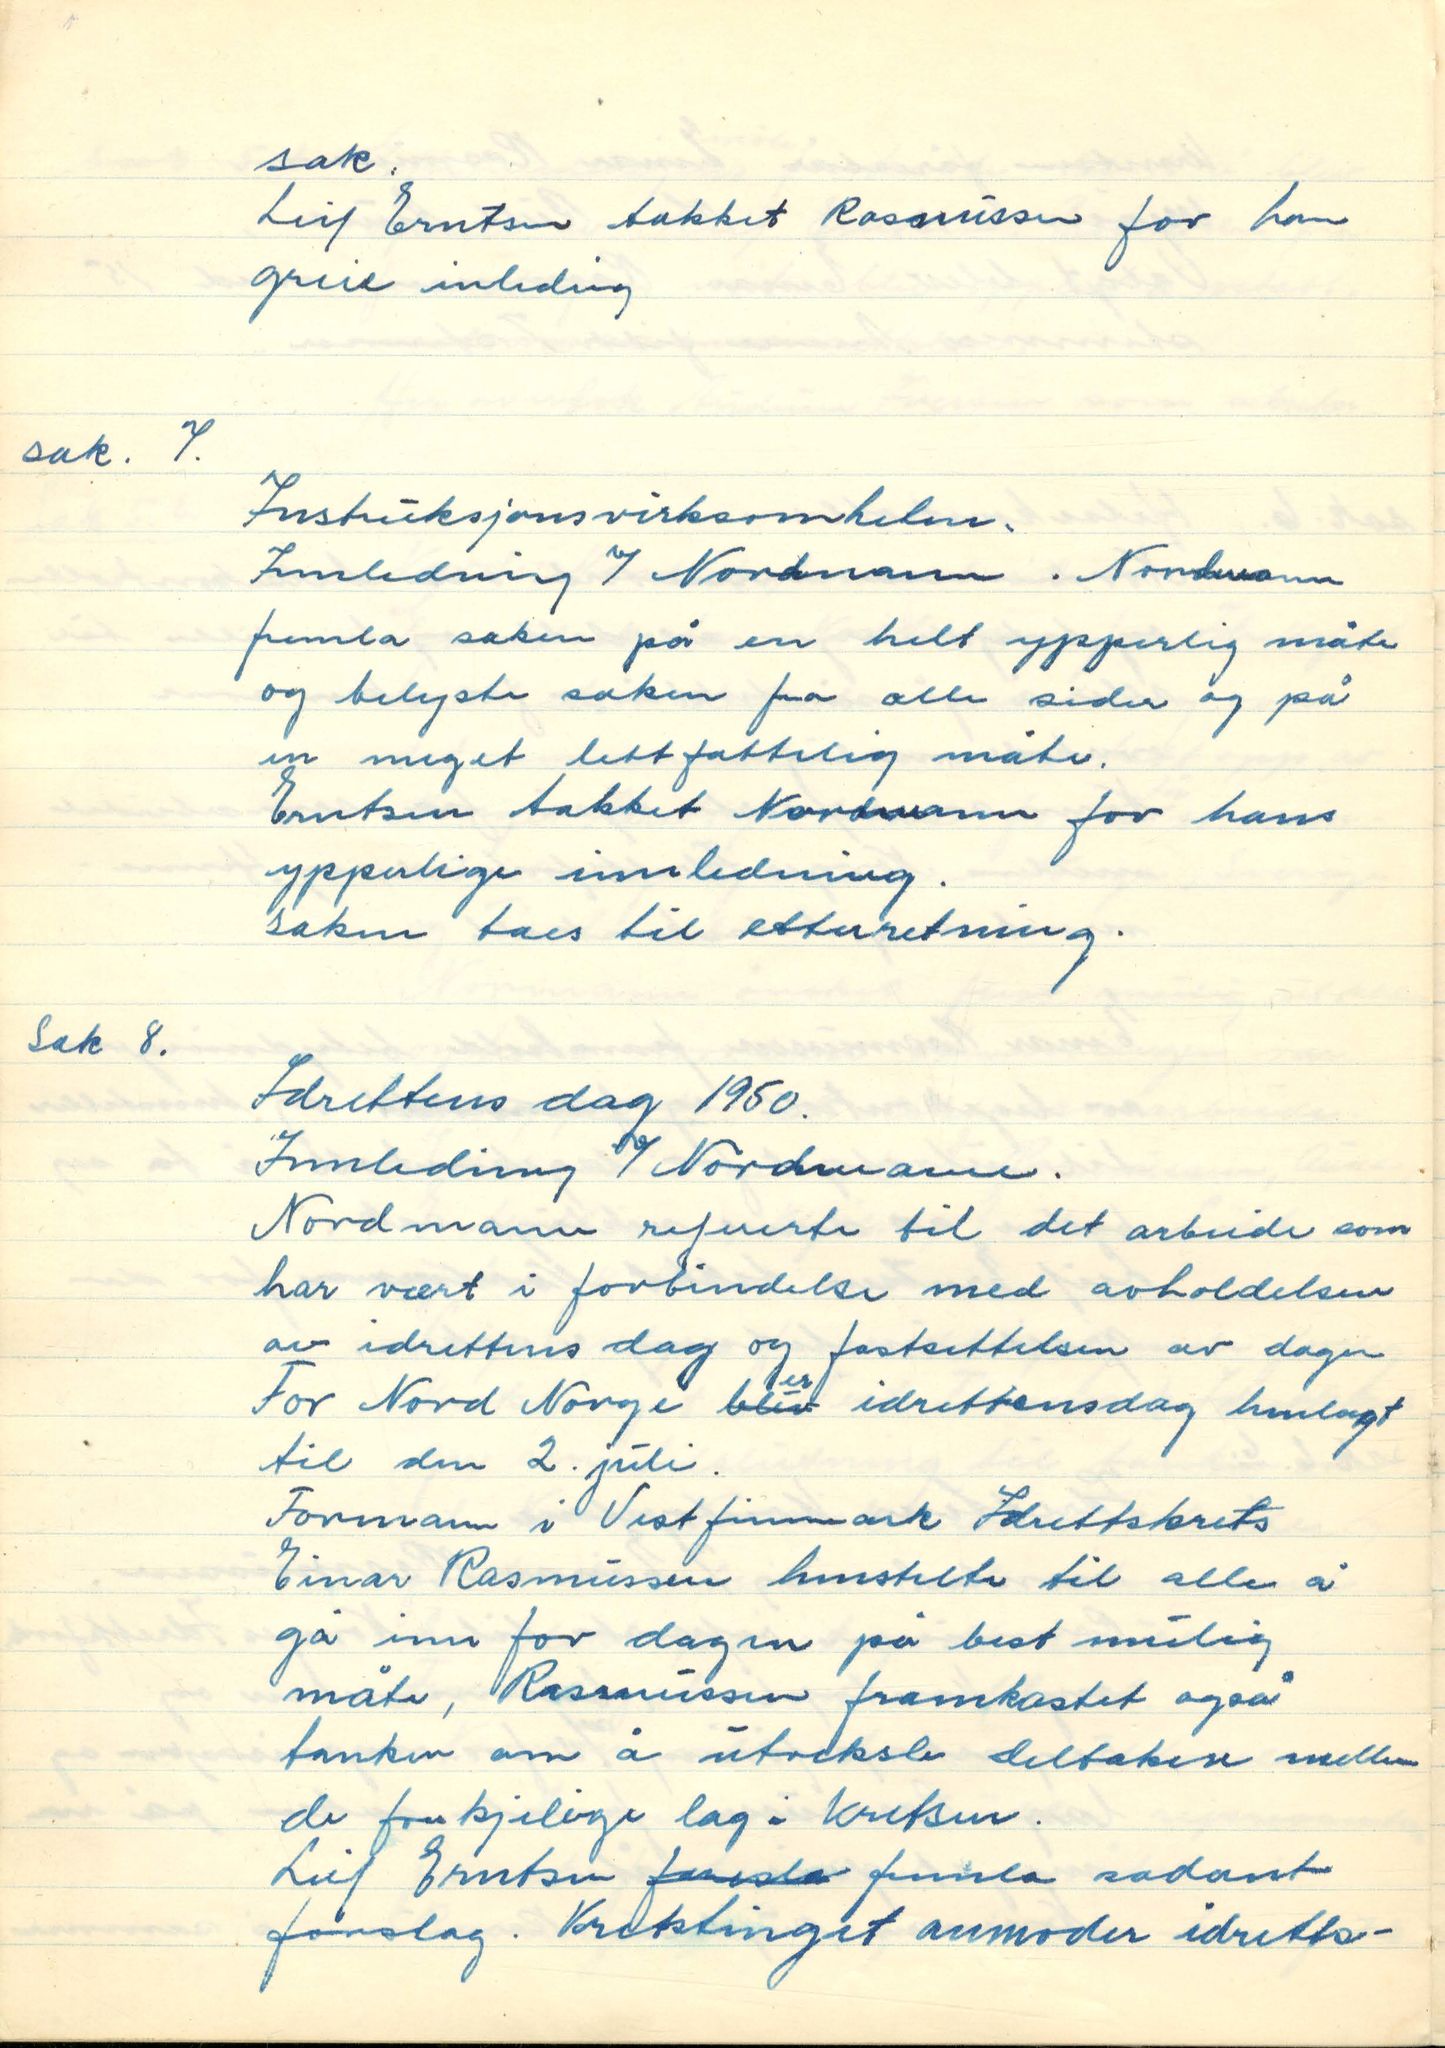 sak.
Leif Erntsen takket Rasmussen for han
greie inleding
sak. 7.
Instruksjonsvirksomheten.
Innledning v/ Nordmann. Nordmann
fremla saken på en helt ypperlig måte
og belyste saken fra alle sider og på
en meget lettfattelig måte.
Erntsen takket Nordmann for hans
ypperlige innledning.
saken taes til etterretning.
Sak 8.
Idrettens dag 1950.
Innleding v/ Nordmann.
Nordmann refererte til det arbeide som
har vært i forbindelse med avholdelsen
av idrettens dag og fastsettelsen av dagen
For Nord Norge bliv er idrettensdag henlagt
til den 2. juli.
Formann i Vestfinnmark Idrettskrets
Einar Rasmussen henstelte til alle å
gå inn for dagen på best mulig
måte, Rasmussen framkastet også
tanken om å utveksle deltakere mellem
de forskjelige lag i kretsen.
Leif Erntsen foresla fremla sådant
forslag. Kretstinget anmoder idretts-